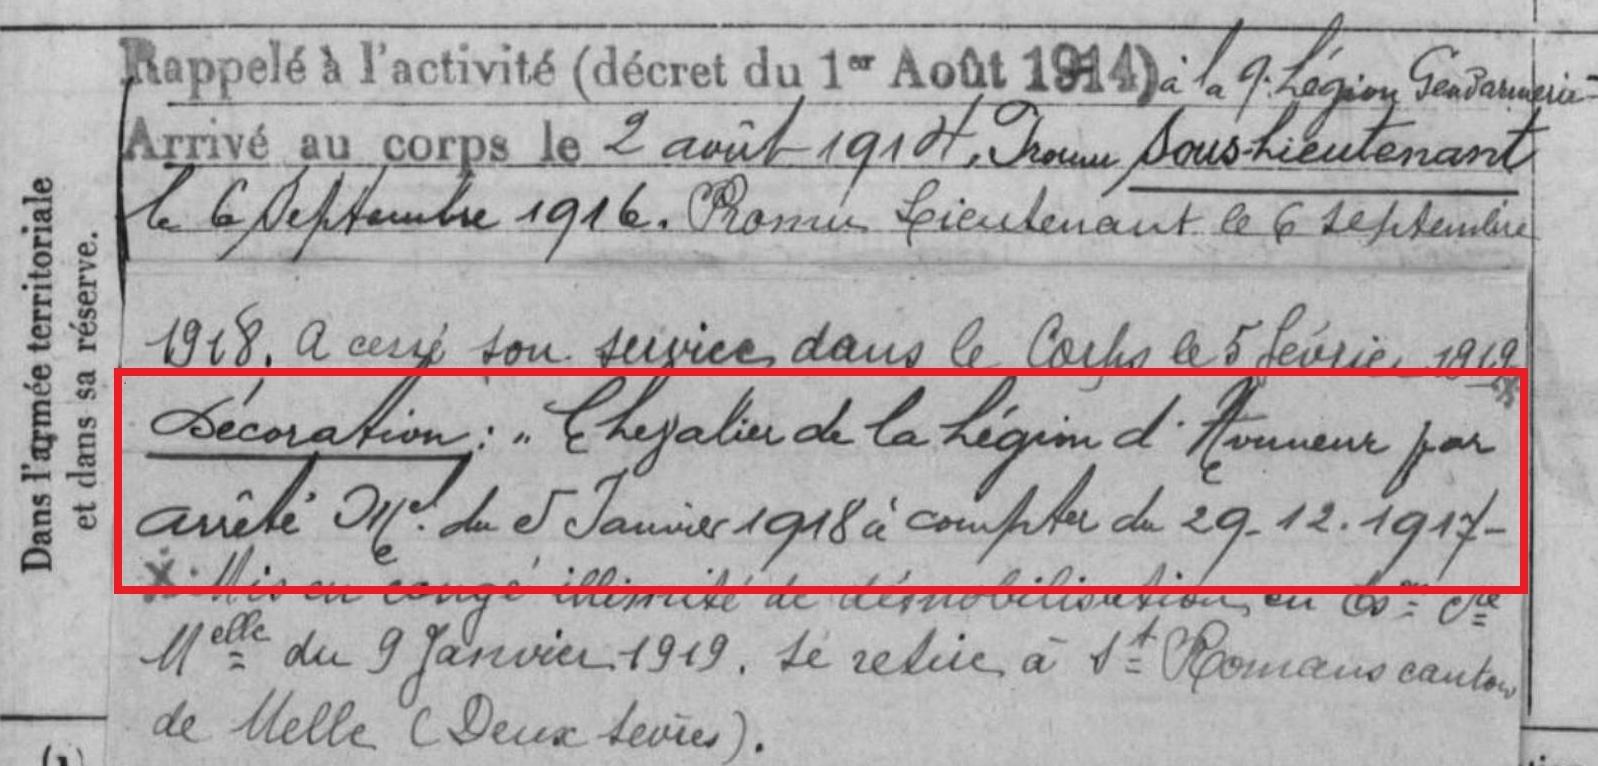 Dans l'armée territoriale
et dans sa réserve.
Rappelé à l'activité (décret du 1er Août 1914) à la 9e Légion Gendarmerie-
Arrivé au corps le 2 août 1914. Promu Sous-Lieutenant
le 6 Septembre 1916. Promu Lieutenant le 6 septembre
1918. A cessé son service dans le Corps le 5 février 1919 x
Décoration : " Chevalier de la Légion d'Honneur par
arrêté Mel. du 5 Janvier 1918 à compter du 29-12.1917-
x. Mis en congé illimité de démobilisation en
Melle du 9 Janvier 1919. se retire à St Romans canton
de Melle (Deux Sèvres).